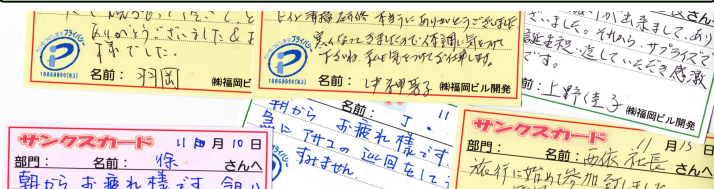 ありがとうございました&お
様でした。
プライバシー
18650090(03)
名前: 羽岡
㈱福岡ビ
トイレ清掃
本当にありがとうございました
寒くなってきましたので体調に気をつけて
下さいね。私も気をつけてお仕事します。
プライバシー
18650090(03)
名前:
㈱福岡ビル開発
が出来まして、あり
ざいました。それから、サプライズで
誕生祝い迄していただき感激
です。
名前: 上野佳子
㈱福岡ビル開発
サンクスカード
11月10日
部門: 名前: 保 さんへ
朝から お疲れ様です
名前:
朝から お疲れ様です。
急に アサコの 巡回をして
すみません。
サンクスカード
11月15日
部門: 名前: 西依 社長 さんへ
旅行に始めて参加致しまし